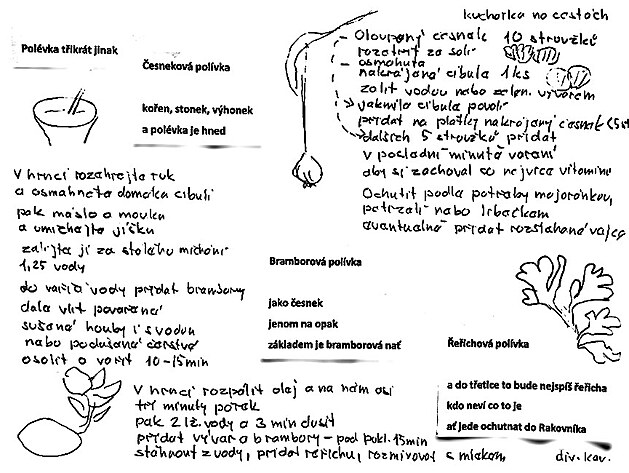 kuchařka na cestách
Polévka třikrát jinak
Česneková polívka
kořen, stonek, výhonek
a polévka je hned
Oloupaný česnek 10 stroužků
rozetřít ze solí
osmahuta
nakrájená cibule 1 ks
zalít vodou nebo zelen. vývarem
jakmile cibule povolí
přidat na plátky nakrájený česnek (5 st
dalších 5 stroužků přidat
v poslední minutě vaření
aby si zachoval co nejvíce vitaminu
Ochutit podle potřeby majoránkou,
petrželí nebo libečkem
eventuelně přidat rozšlehané vejce
V hrnci rozehřejte tuk
a osmahněte domeka cibuli
pak máslo a mouku
a umíchejte jíšku
zalijte ji za stálého míchání
1,25 vody
do vařící vody přidat brambory
dále vlít povařené
sušené houby i s vodou
nebo podušené čerstvé
osolit a vařit 10-15 min
Bramborová polívka
jako česnek
jenom na opak
základem je bramborová nať
Řeřichová polívka
a do třetice to bude nejspíš řeřicha
kdo neví co to je
ať jede ochutnat do Rakovníka
V hrnci rozpálit olej a na něm asi
tři minuty pórek
pak 2 lž. vody a 3 min dusit
přidat vývar a brambory - pod pokl. 15 min
stáhnout z vody, přidat řeřichu, rozmixovat s mlékem
div. kav.